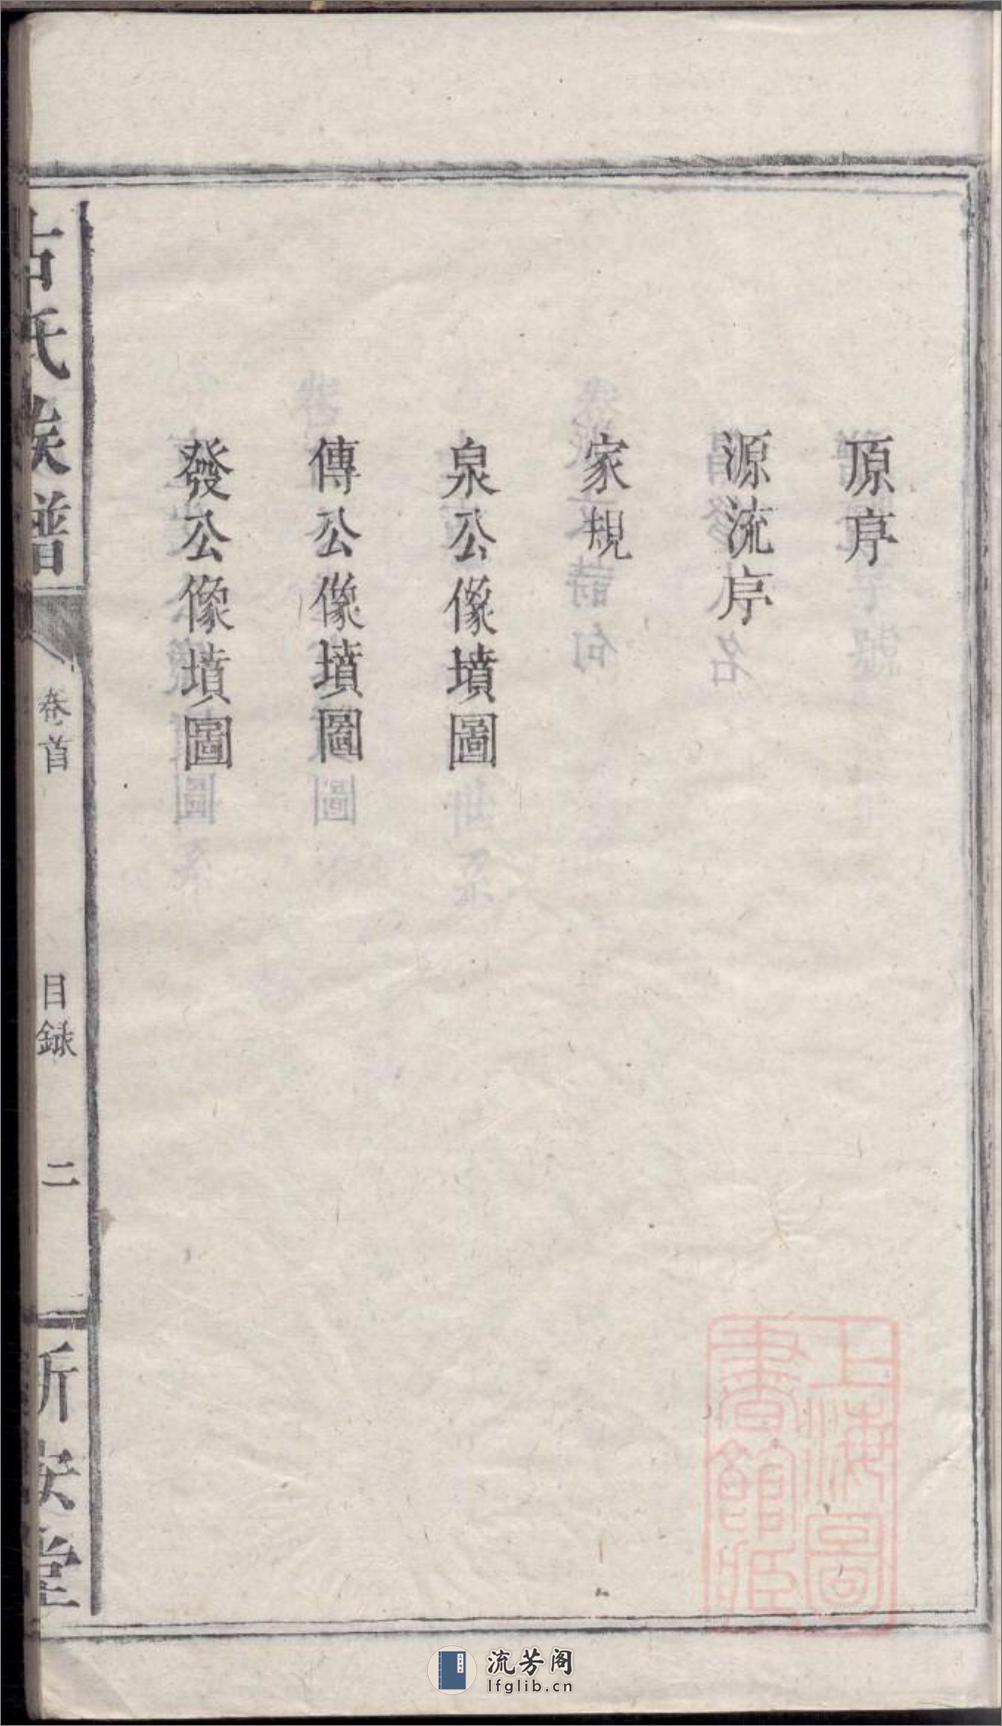 原序
源流序
家規
泉公像墳圖
傳公像墳圖
發公像墳圖
古氏族譜
卷首
目録
二
新安堂
上海圖書館藏
流芳阁
lfglib.cn